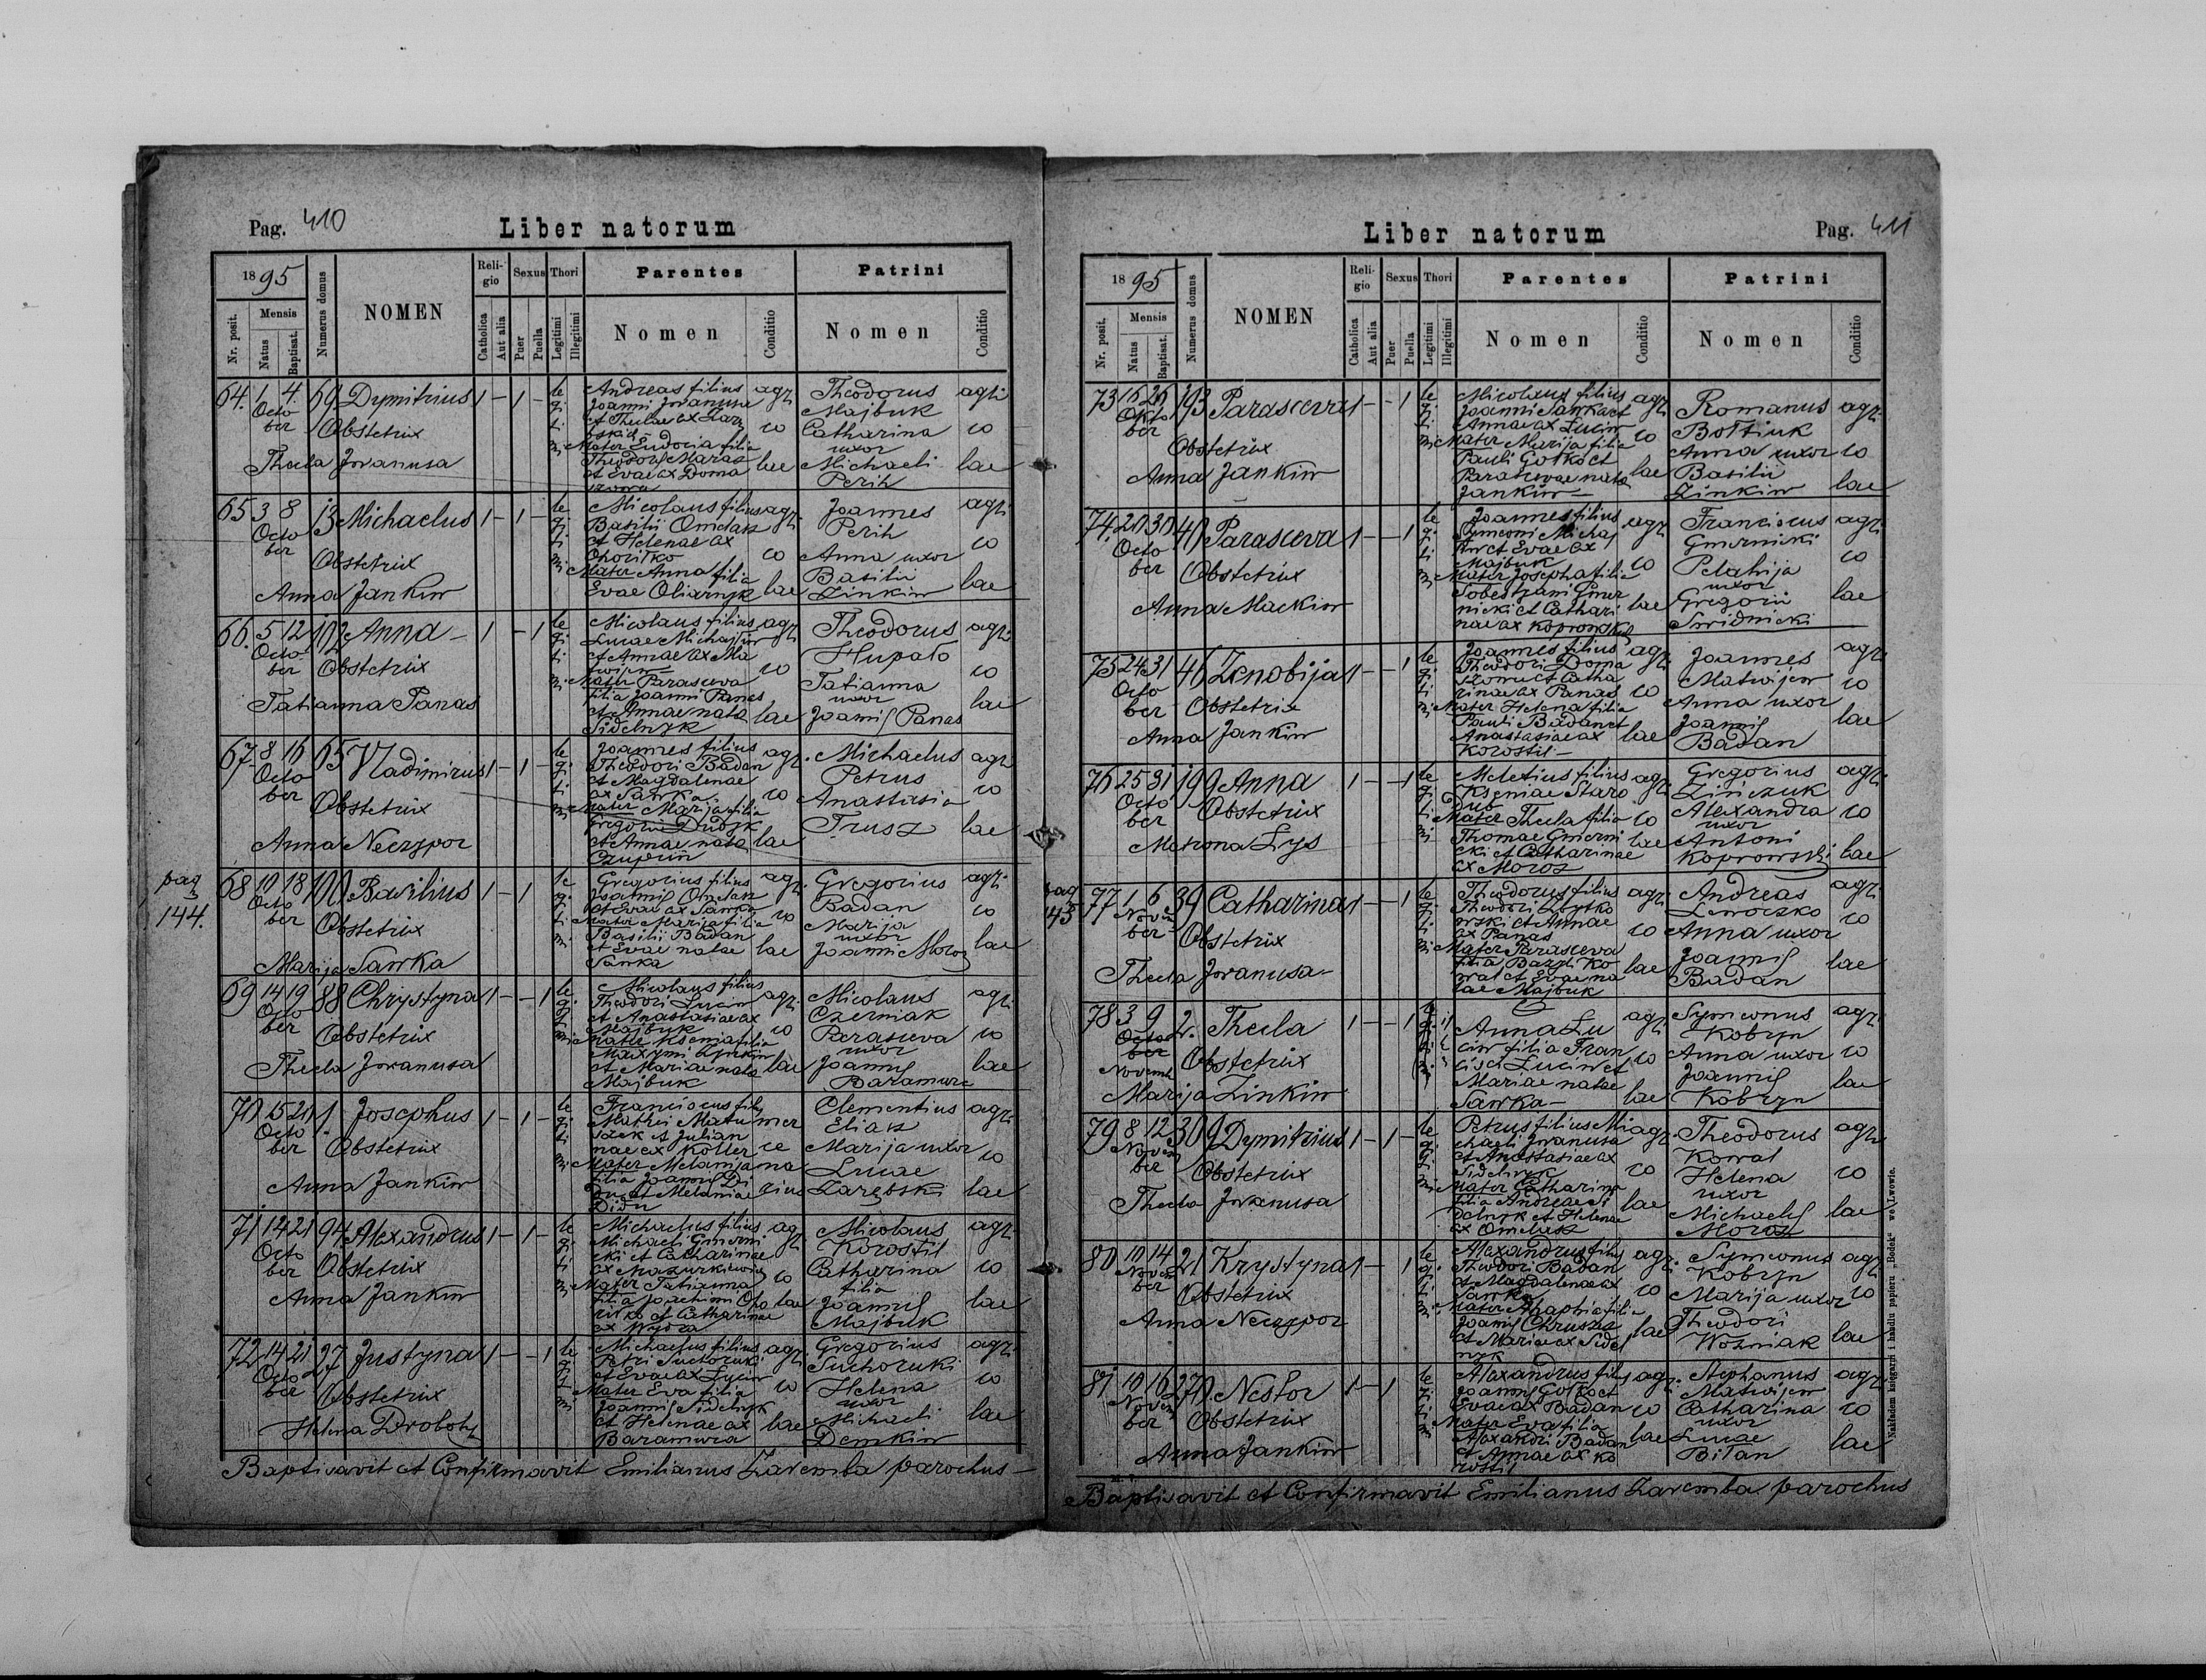 Pag. 410
Liber natorum
1895
Nr. posit.
Mensis
Natus
Baptisat.
Numerus domus
NOMEN
Religio
Catholica
Aut alia
Sexus
Puer
Puella
Thori
Legitimi
Illegitimi
Parentes
Nomen
Conditio
Patrini
Nomen
Conditio
64. 1 4. 69. Dymitrius 1 - 1 -
October
Obstetrix
Thecla Jwanusa
legitimi
Andreas filius
Joanni Jwanusa
et Theclae ex Zarę
bskich
Mater Eudocia filia
Theodori Maraz
et Evae ex Doma
szowa
agricolae
Theodorus
Majbuk
Catharina
uxor
Michaeli
Perih
agricolae
65 3 8 13 Michaelus 1 - 1 -
October
Obstetrix
Anna Jankiw
legitimi
Nicolaus filius
Basilii Omelasz
et Helenae ex
Choritko
Mater Anna filia
Evae Oliarnyk
agricolae
Joannes
Perih
Anna uxor
Basilii
Zinkiw
agricolae
66. 5 12 102 Anna 1 - 1
October
Obstetrix
Tatianna Panas
legitimi
Nicolaus filius
Lucae Michajłiw
et Annae ex Ma
twijew
Mater Parasceva
filia Joanni Panas
et Annae nata
Sidelnyk
agricolae
Theodorus
Hupało
Tatianna
uxor
Joannis Panas
agricolae
67. 8 16 65 Vladimirus 1 - 1 -
October
Obstetrix
Anna Neczypor
legitimi
Joannes filius
Theodori Badan
et Magdalenae
ex Sawka
Mater Marija filia
Gregorii Dudyk
et Annae nata
Czupryn
agricolae
Michaelus
Petrus
Anastasia
Trusz
agricolae
pag
144.
68 10 18 100 Basilius 1 - 1
October
Obstetrix
Marija Sawka
legitimi
Gregorius filius
Joannis Omelasz
et Evae ex Sawka
Mater Marija filia
Basilii Badan
et Evae natae
Sawka
agricolae
Gregorius
Badan
Marija
uxor
Joanni Moroz
agricolae
69 14 19 88 Chrystyna 1 - - 1
October
Obstetrix
Thecla Jwanusa
legitimi
Nicolaus filius
Theodori Luciw
et Anastasiae ex
Majbuk
Mater Ksenia filia
Maxymi
et Mariae nata
Majbuk
agricolae
Nicolaus
Czerniak
Parasceva
uxor
Joannis
Baramura
agricolae
70 15 20 1 Josephus 1 - 1 -
October
Obstetrix
Anna Jankiw
legitimi
Franciscus filius
Mathei Matu
szek et Julian
nae ex Koller
Mater Melanja
filia Joannis Di
du et Melaniae
Didu
mercenarius
Clementius
Eliasz
Marija uxor
Lucae
Zarębski
agricolae
71 14 21 94 Alexandrus 1 - 1 -
October
Obstetrix
Anna Jankiw
legitimi
Michaelus filius
Michaeli Gmerni
cki et Catharinae
ex Mazurkiewicz
Mater Tatianna
filia Joachimi Cho
ritko et Catharinae
ex Wydra
agricolae
Nicolaus
Korostil
Catharina
filia
Joannis
Majbuk
agricolae
72 14 21 27 Justyna 1 - - 1
October
Obstetrix
Helena Droboty
legitimi
Michaelus filius
Petri Suchoruki
et Evae ex Luciw
Mater Eva filia
Joannis Sidelnyk
et Helenae ex
Baramura
agricolae
Gregorius
Suchoruki
Helena
uxor
Michaeli
Demkiw
agricolae
Baptisavit et Confirmavit Emilianus Zaremba parochus
Liber natorum
Pag. 411
1895
Nr. posit.
Mensis
Natus
Baptisat.
Numerus domus
NOMEN
Religio
Catholica
Aut alia
Sexus
Puer
Puella
Thori
Legitimi
Illegitimi
Parentes
Nomen
Conditio
Patrini
Nomen
Conditio
73 16 26 193 Parasceva 1 - - 1
Oktober
Obstetrix
Anna Jankiw
legitimi
Nicolaus filius
Joanni Sawka et
Annae ex Luciw
Mater Marija filia
Pauli Gołko et
Parascevae nata
Jankiw
agricolae
Romanus
Bołtiuk
Anna uxor
Basilii
Zinkiw
agricolae
74. 20 30 40 Parasceva 1 - - 1
October
Obstetrix
Anna Mackiw
legitimi
Joannes filius
Symeoni Michaj
łiw et Evae ex
Majbuk
Mater Josepha filia
Sobestyani Gmer
nicki et Cathari
nae ex Koprowski
agricolae
Franciscus
Gmernicki
Pelahija
uxor
Gregorii
Swidnicki
agricolae
75 24 31 46 Zenobija 1 - - 1
October
Obstetrix
Anna Jankiw
legitimi
Joannes filius
Theodori Doma
szowu et Catha
rinae ex Panas
Mater Helena filia
Pauli Badan et
Anastasiae ex
Korostil
agricolae
Joannes
Matwijew
Anna uxor
Joannis
Badan
agricolae
76 25 31 199 Anna 1 - - 1
October
Obstetrix
Metrona Lys
legitimi
Meletius filius
Kseniae Staro
Dub
Mater Thecla filia
Thomae Gmerni
cki et Catharinae
ex Moroz
agricolae
Gregorius
Zińczuk
Alexandra
uxor
Antoni
Koprowski
agricolae
pag
145
77 1 6 39 Catharina 1 - - 1
November
Obstetrix
Thecla Jwanusa
legitimi
Theodorus filius
Theodori Lytko
wski et Annae
ex Panas
Mater Parasceva
filia Bazyli Ko
wal et Evae na
tae Majbuk
agricolae
Andreas
Lewoczko
Anna uxor
Joannis
Badan
agricolae
78 3 9 2. Thecla 1 - - 1
October
Novemb
Obstetrix
Marija Zinkiw
Anna Lu
ciw filia Fran
cisci Luciw et
Mariae natae
Sawka
agricolae
Symeonus
Kobryn
Anna uxor
Joannis
Kobryn
agricolae
79 8 12 309 Dymitrius 1 - 1 -
November
Obstetrix
Thecla Jwanusa
legitimi
Petrus filius Mi
chaeli Jwanusa
et Anastasiae ex
Sidelnyk
Mater Catharina
filia Andreae Si
delnyk et Helenae
ex Omelasz
agricolae
Theodorus
Kowal
Helena
uxor
Michaelis
Moroz
agricolae
80 10 14 21 Krystyna 1 - 1
November
Obstetrix
Anna Neczypor
legitimi
Alexandrus filius
Theodori Badan
et Magdalenae ex
Sawka
Mater Ahaphia filia
Joannis Chruszcz
et Mariae ex Sidel
nyk
agricolae
Symeonus
Kobryn
Marija uxor
Theodori
Woźniak
agricolae
81 10 16 270 Nestor 1 - 1
November
Obstetrix
Anna Jankiw
legitimi
Alexandrus filius
Joannis Gołko et
Evae ex Badan
Mater Eva filia
Alexandri Badan
et Annae ex Ko
rostil
agricolae
Stephanus
Matwijew
Catharina
uxor
Lucae
Biłan
agricolae
Baptisavit et Confirmavit Emilianus Zaremba parochus
Nakładem księgarni i handlu papieru „Bodek“ we Lwowie.